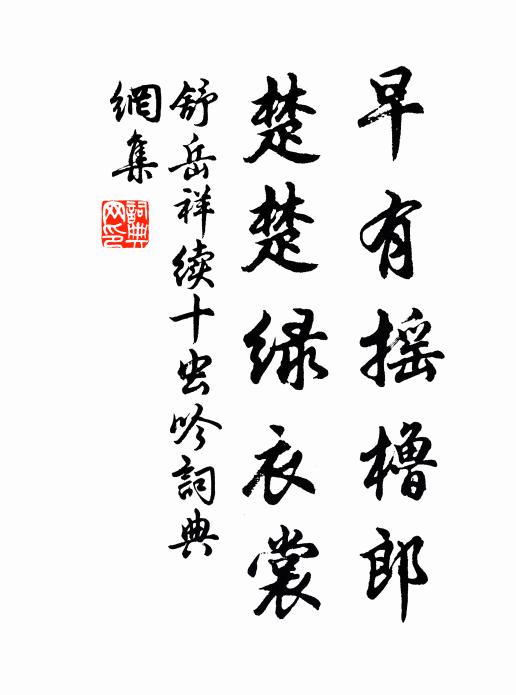 早有摇櫓郎
楚楚绿衣裳
舒岳祥续十虫吟詞典
網集
詞典
网印